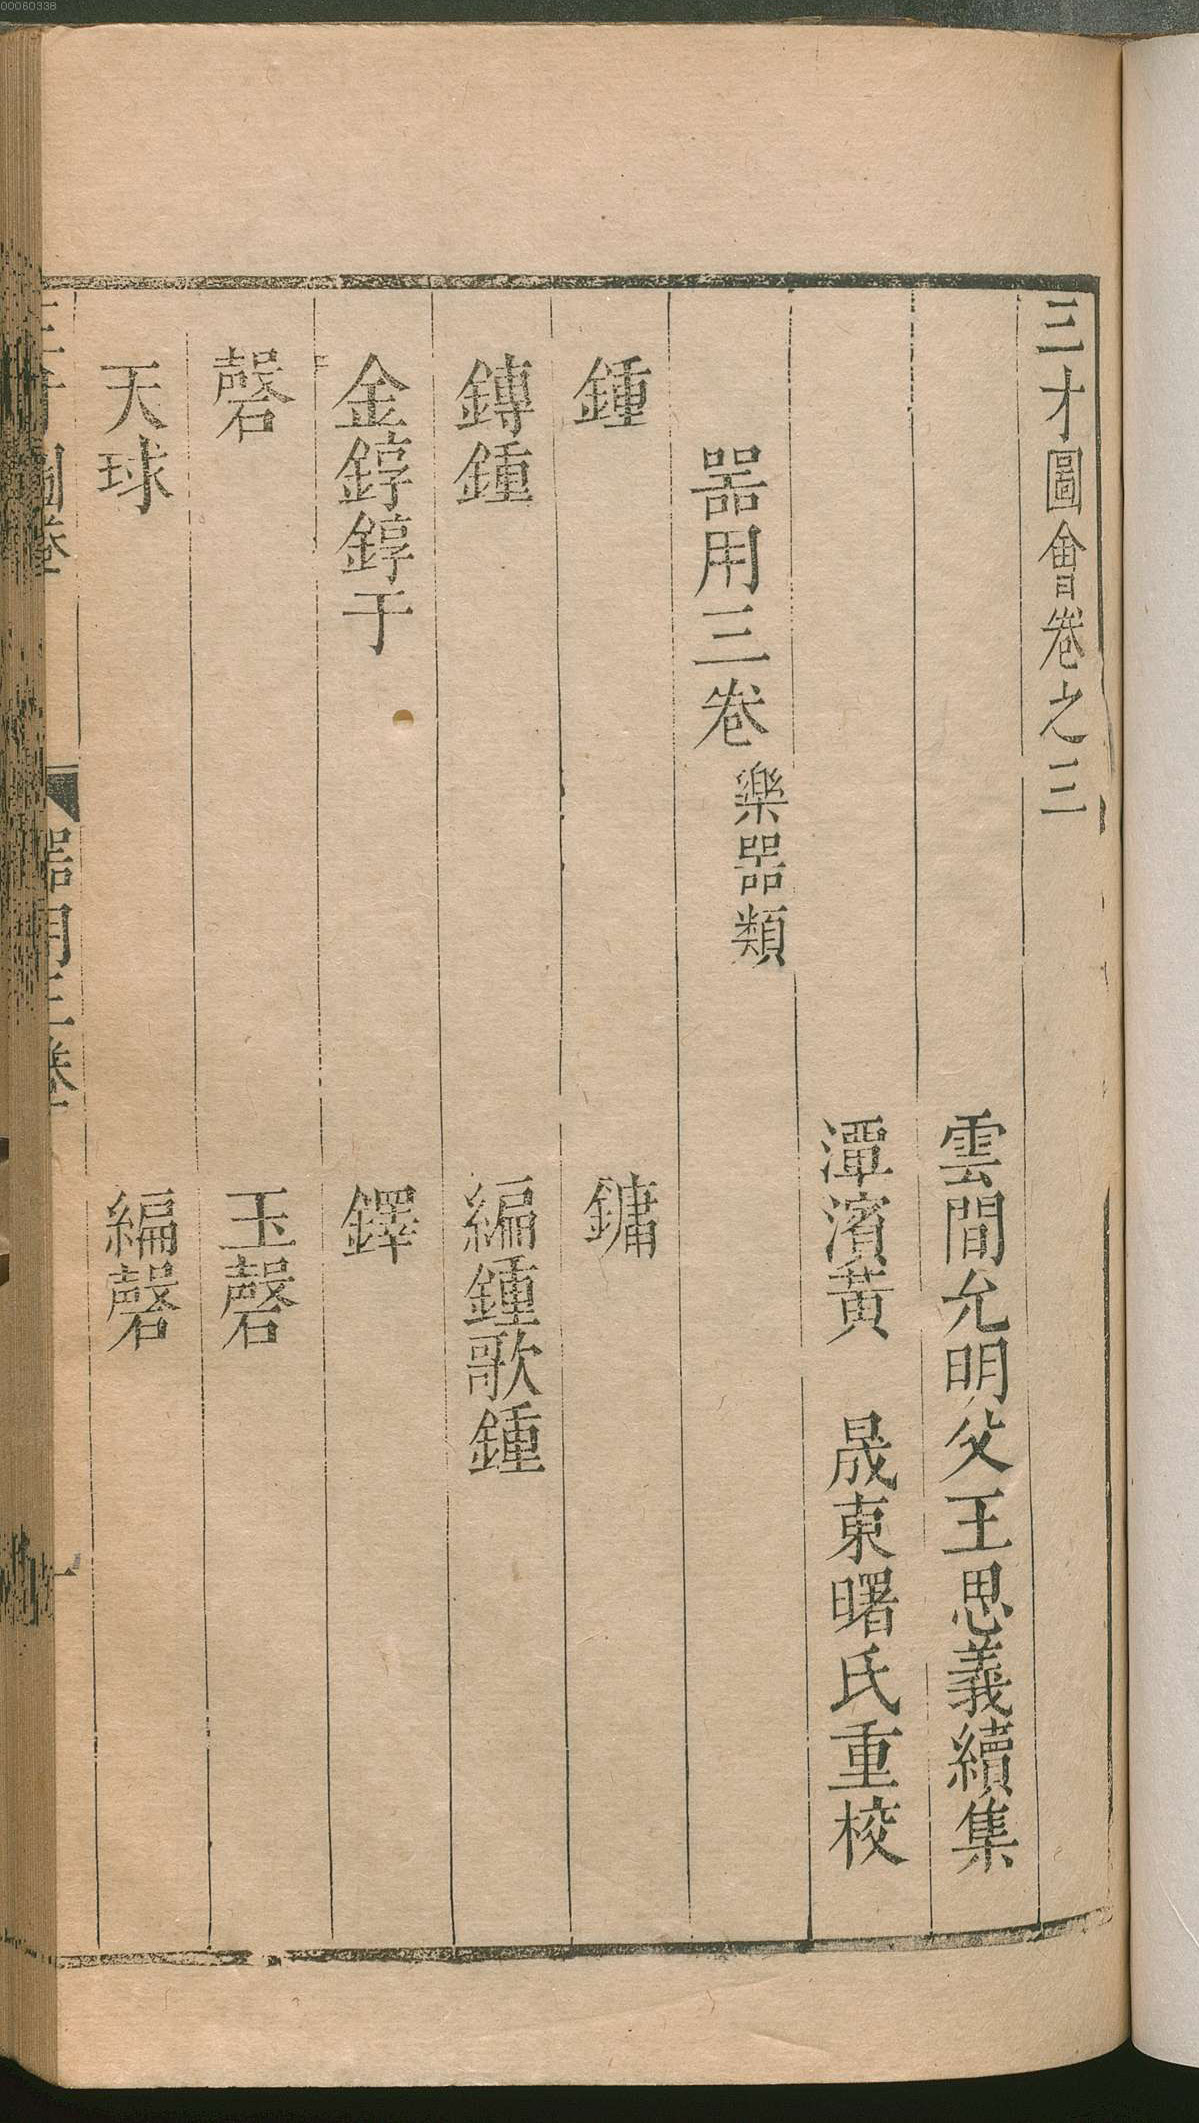 00060338
三才圖會卷之三
雲間允明父王思義續集
潭濱黃 晟東曙氏重校
器用三卷 樂器類
鍾 鏞
鎛鍾 編鍾歌鍾
金錞錞于 鐸
磬 玉磬
天球 編磬
三才圖會 器用三卷 一